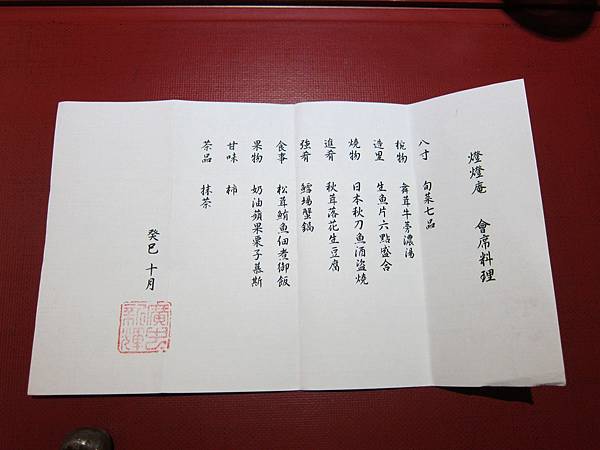 燈燈庵 會席料理
八寸 旬菜七品
椀物 舞茸牛蒡濃湯
造里 生魚片六點盛合
燒物 日本秋刀魚酒盜燒
進肴 秋茸落花生豆腐
強肴 鱈場蟹鍋
食事 松茸鮪魚佃煮御飯
果物 奶油蘋果栗子慕斯
甘味 柿
茶品 抹茶
癸巳 十月